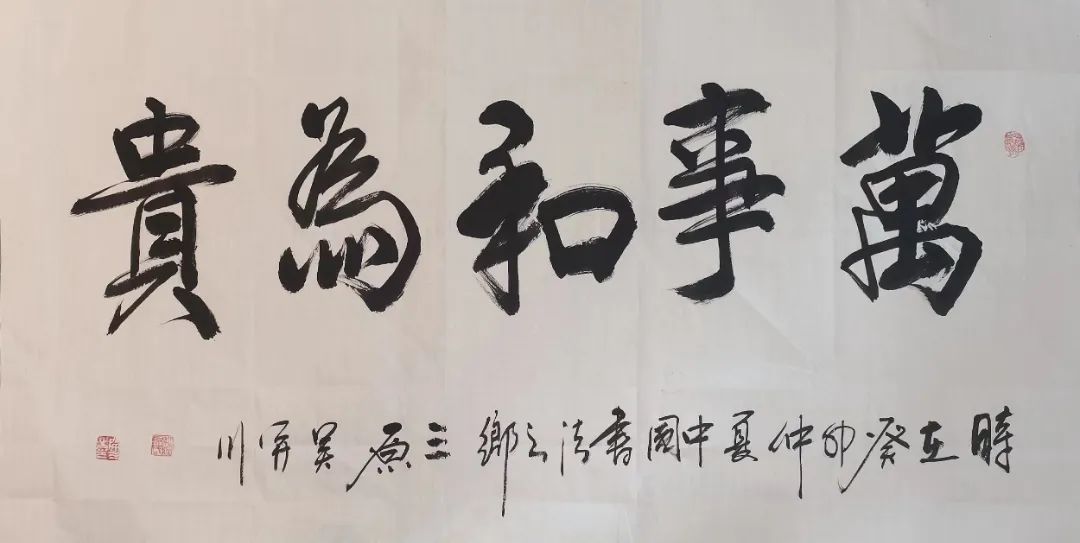 萬事和為貴
時在癸卯仲夏中國書法之鄉三原吴屏川